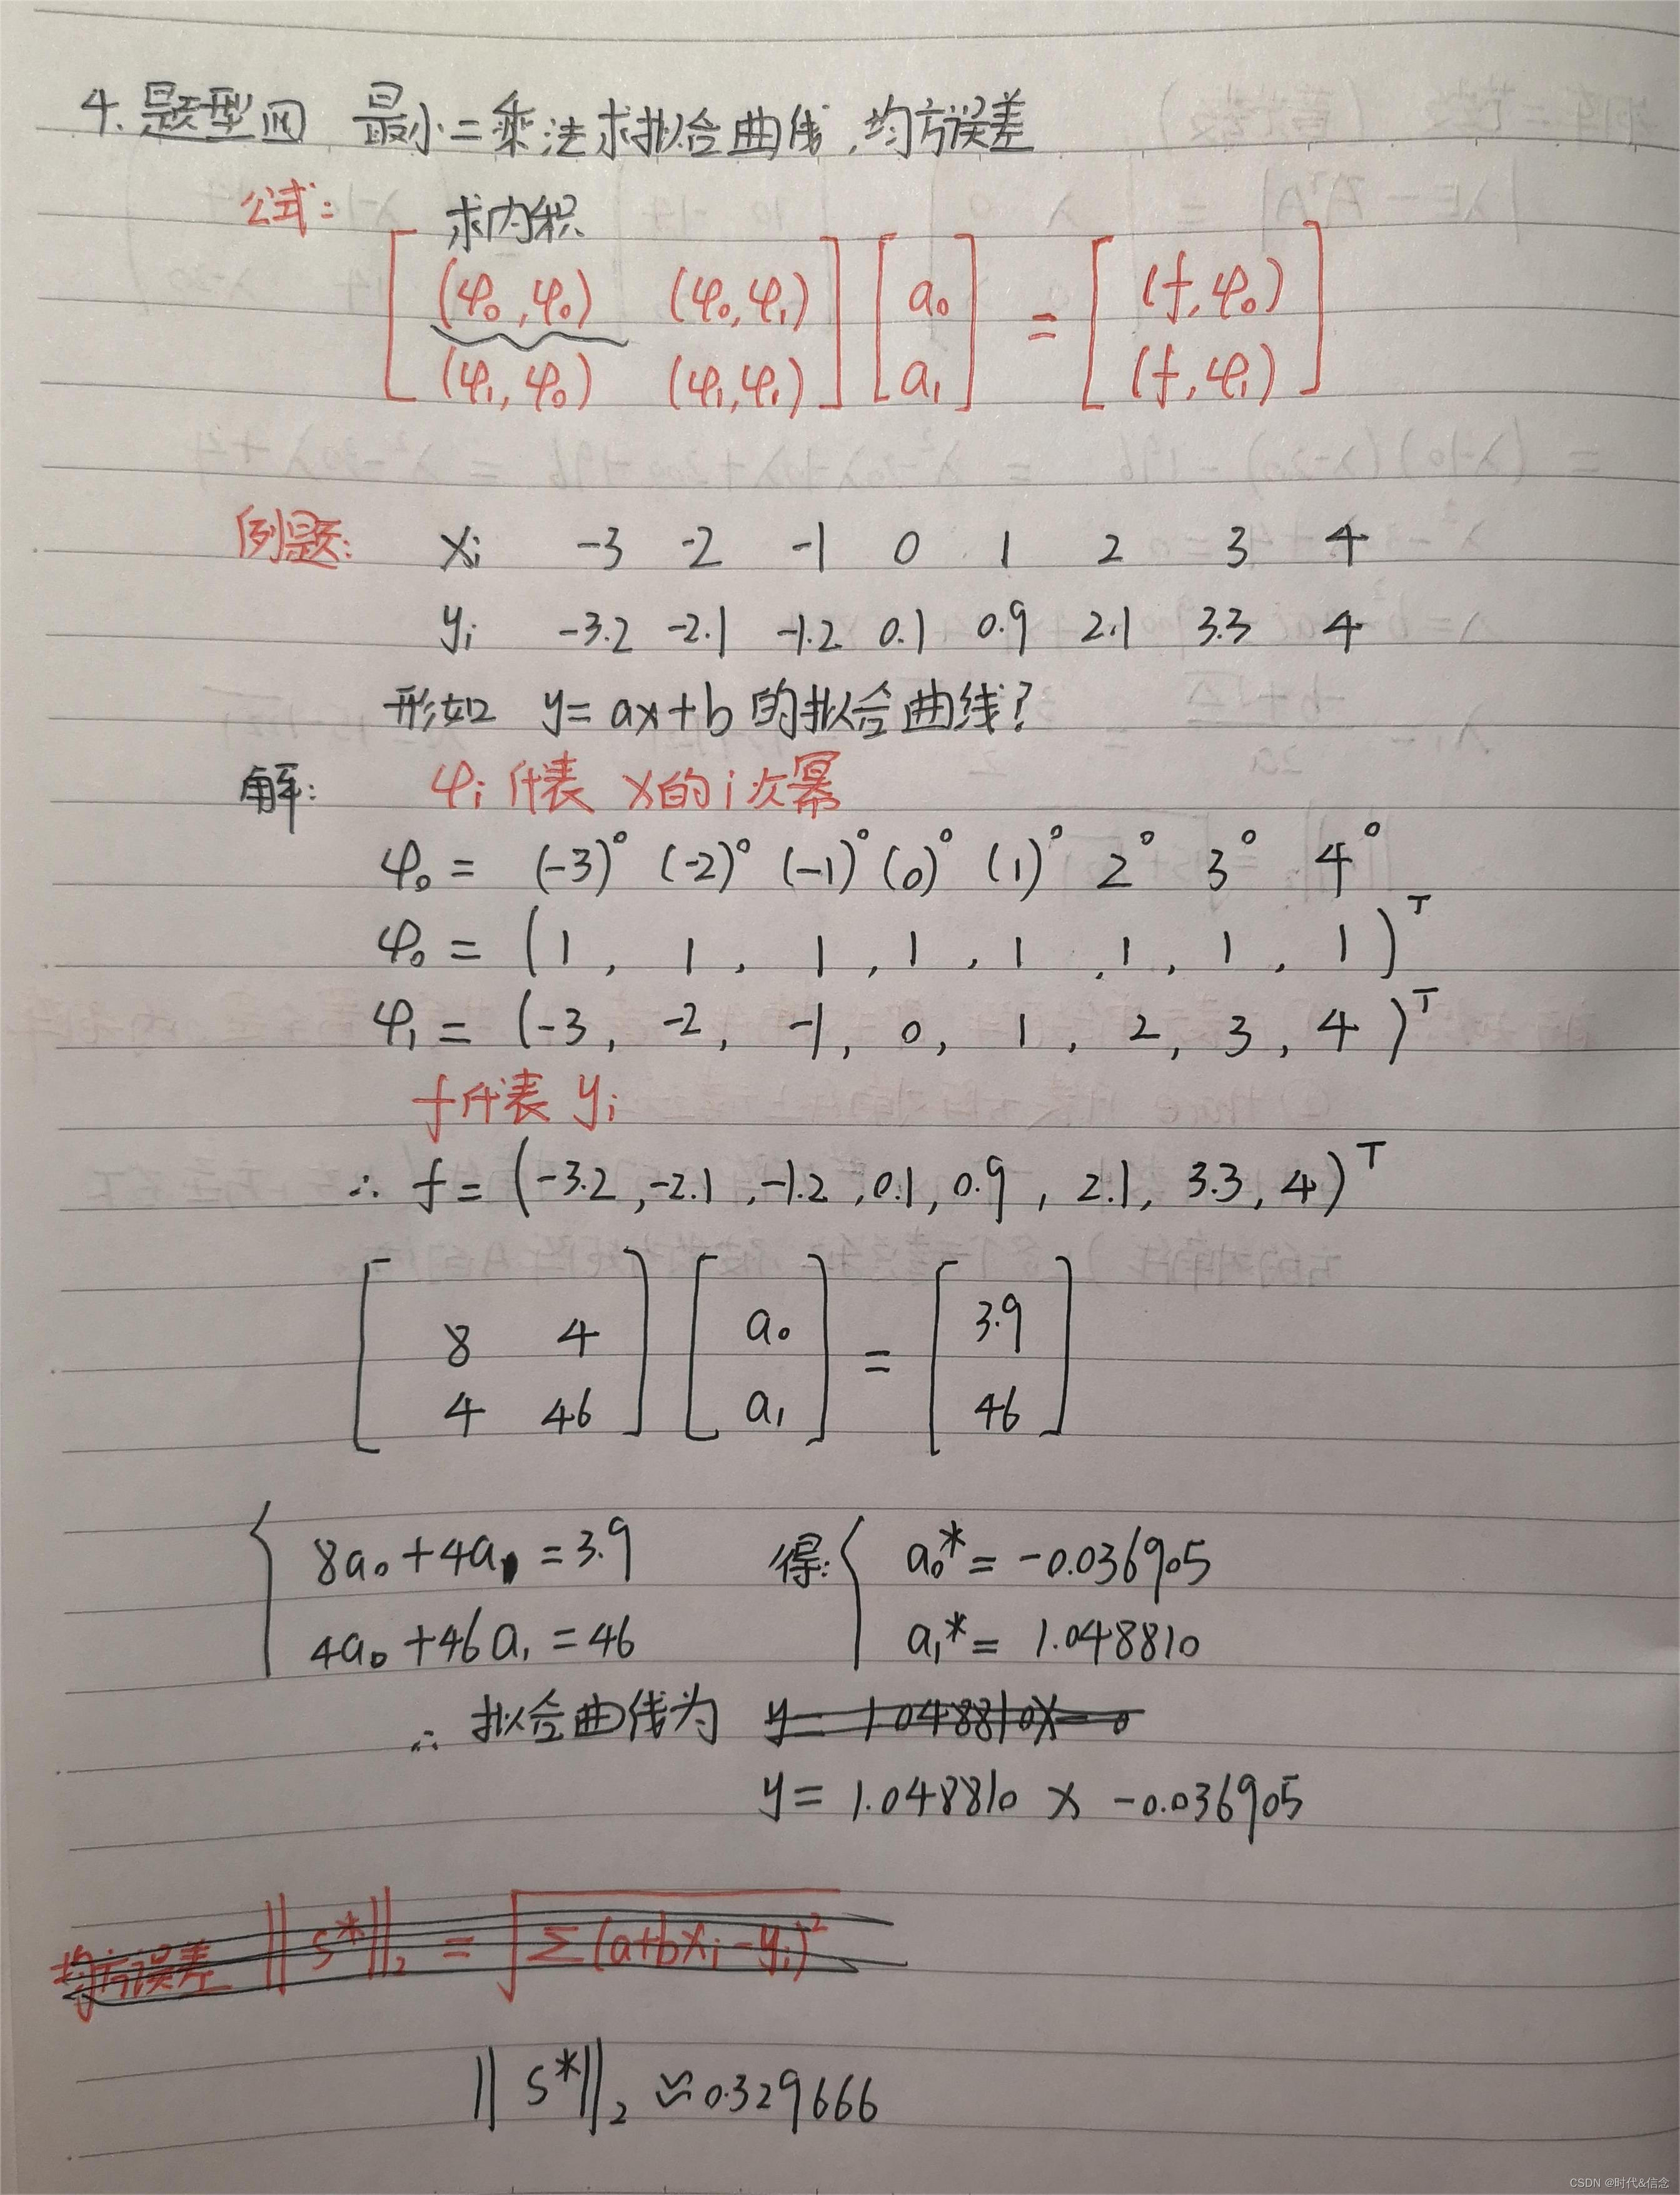 4. 题型四 最小二乘法求拟合曲线,均方误差
公式: 求内积
[ (φ₀,φ₀) (φ₀,φ₁) ] [ a₀ ] = [ (f,φ₀) ]
[ (φ₁,φ₀) (φ₁,φ₁) ] [ a₁ ] [ (f,φ₁) ]
例题: xᵢ -3 -2 -1 0 1 2 3 4
yᵢ -3.2 -2.1 -1.2 0.1 0.9 2.1 3.3 4
形如 y=ax+b 的拟合曲线?
解: φᵢ代表 x的i次幂
φ₀ = (-3)⁰ (-2)⁰ (-1)⁰ (0)⁰ (1)⁰ 2⁰ 3⁰ 4⁰
φ₀ = (1, 1, 1, 1, 1, 1, 1, 1)ᵀ
φ₁ = (-3, -2, -1, 0, 1, 2, 3, 4)ᵀ
f代表 yᵢ
∴ f = (-3.2, -2.1, -1.2, 0.1, 0.9, 2.1, 3.3, 4)ᵀ
[ 8 4 ] [ a₀ ] = [ 3.9 ]
[ 4 46 ] [ a₁ ] [ 46 ]
{ 8a₀+4a₁=3.9 得: { a₀*= -0.036905
4a₀+46a₁=46 a₁*= 1.048810
∴ 拟合曲线为 y= 1.048810x-0
y= 1.048810 x -0.036905
均方误差 ‖s*‖₂ = √Σ(a+bxᵢ-yᵢ)²
‖s*‖₂ ≈ 0.329666
CSDN @时代&信念